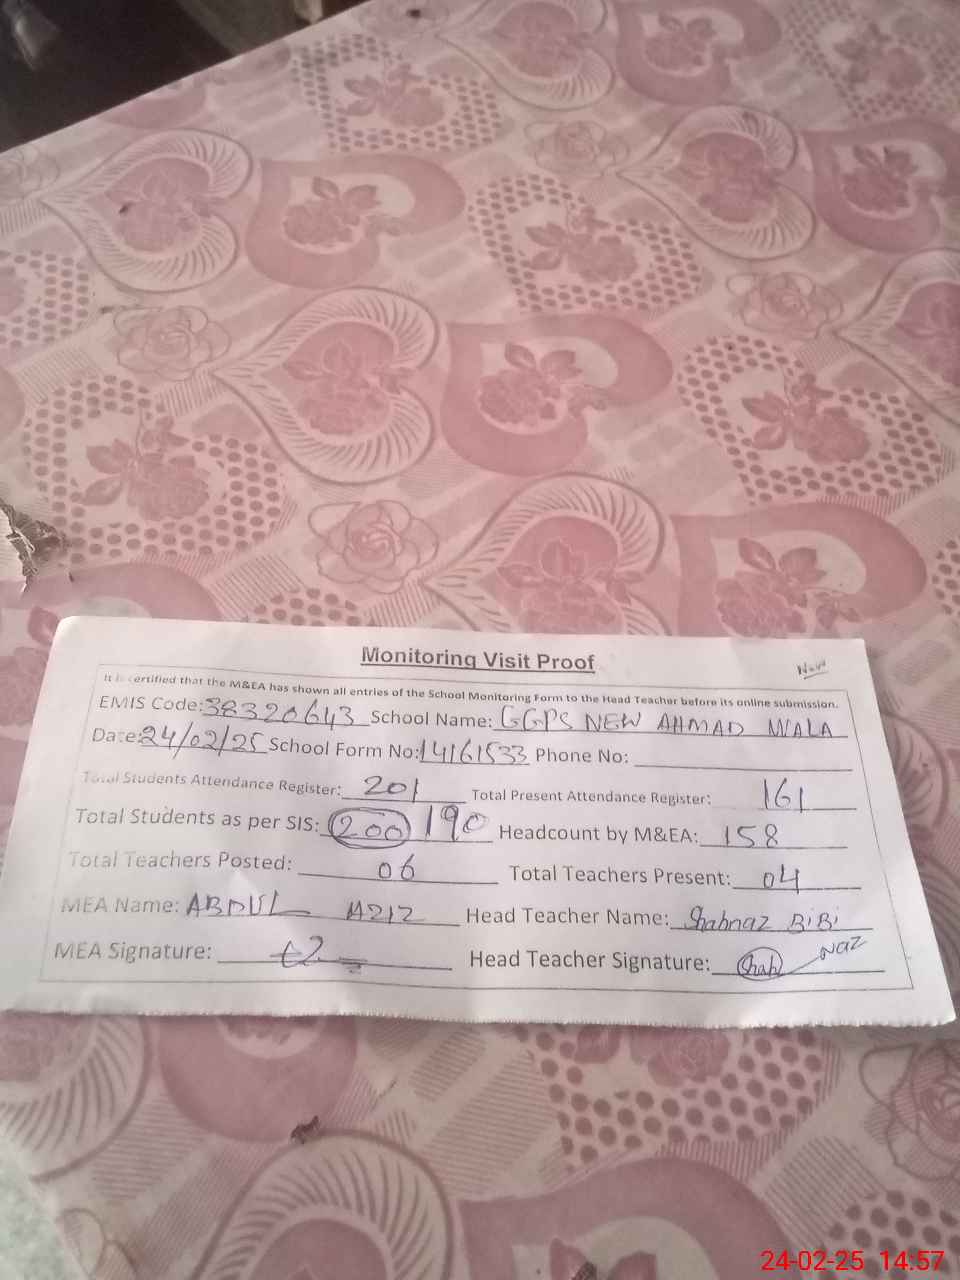 Monitoring Visit Proof
It is certified that the M&EA has shown all entries of the School Monitoring Form to the Head Teacher before its online submission.
EMIS Code: 38320643 School Name: GGPS NEW AHMAD WALA
Date: 24/02/25 School Form No: 14161533 Phone No:
Total Students Attendance Register: 201 Total Present Attendance Register: 161
Total Students as per SIS: 200 190 Headcount by M&EA: 158
Total Teachers Posted: 06 Total Teachers Present: 04
MEA Name: ABDUL AZIZ Head Teacher Name: Shahnaz BiBi
MEA Signature: Head Teacher Signature: Shah naz
24-02-25 14:57